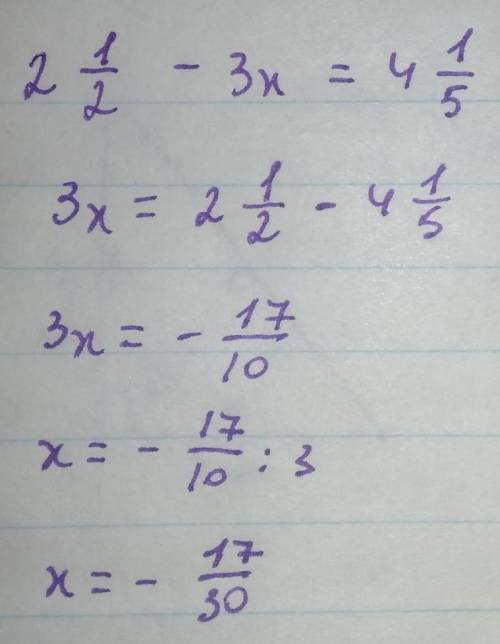 2 1/2 - 3x = 4 1/5
3x = 2 1/2 - 4 1/5
3x = - 17/10
x = - 17/10 : 3
x = - 17/30